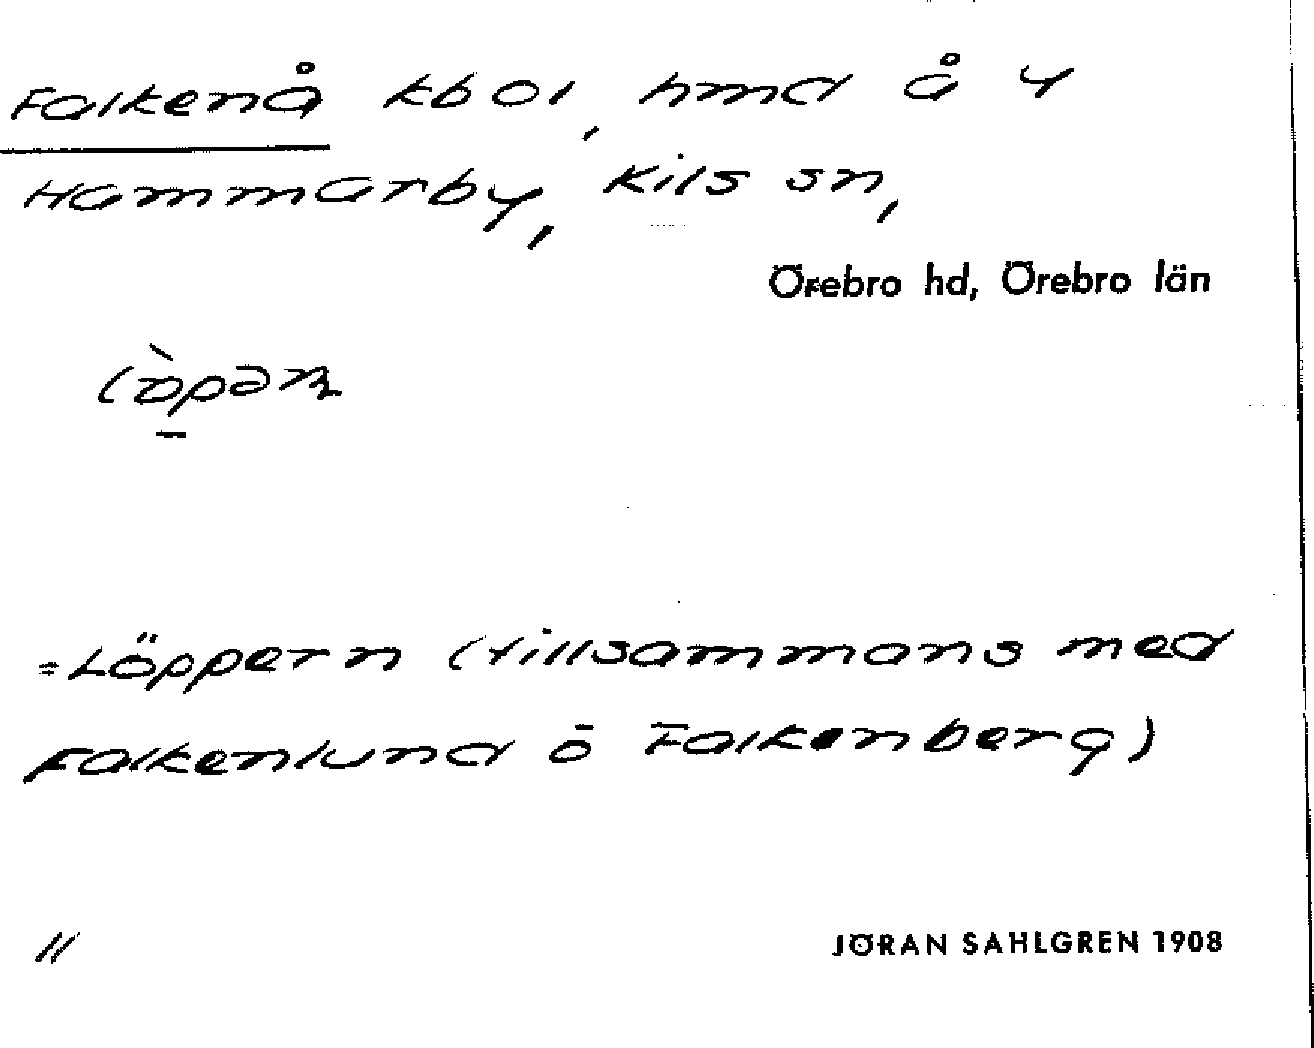 Falkenå kbol, hmd å 4
Hammarby, Kils sn,
Örebro hd, Örebro län
= Löppern (tillsammans med
Falkenlund o Falkenberg)
11
JÖRAN SAHLGREN 1908